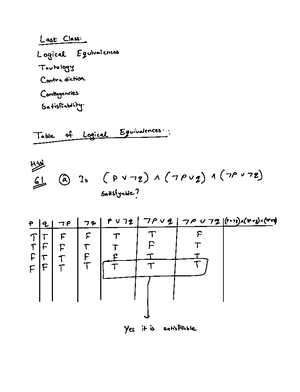 Last Class:
Logical Equivalences
Tautology
Contradiction
Contogencies
Satisfiability.
Table of Logical Equivalences:
HW
61 (a) Is (p ∨ ¬q) ∧ (¬p ∨ q) ∧ (¬p ∨ ¬q)
satisfyable?
p q ¬p ¬q p ∨ ¬q ¬p ∨ q ¬p ∨ ¬q
T T F F T T F
T F F T T F T
F T T F F T T
F F T T T T T
Yes it is satisfiable